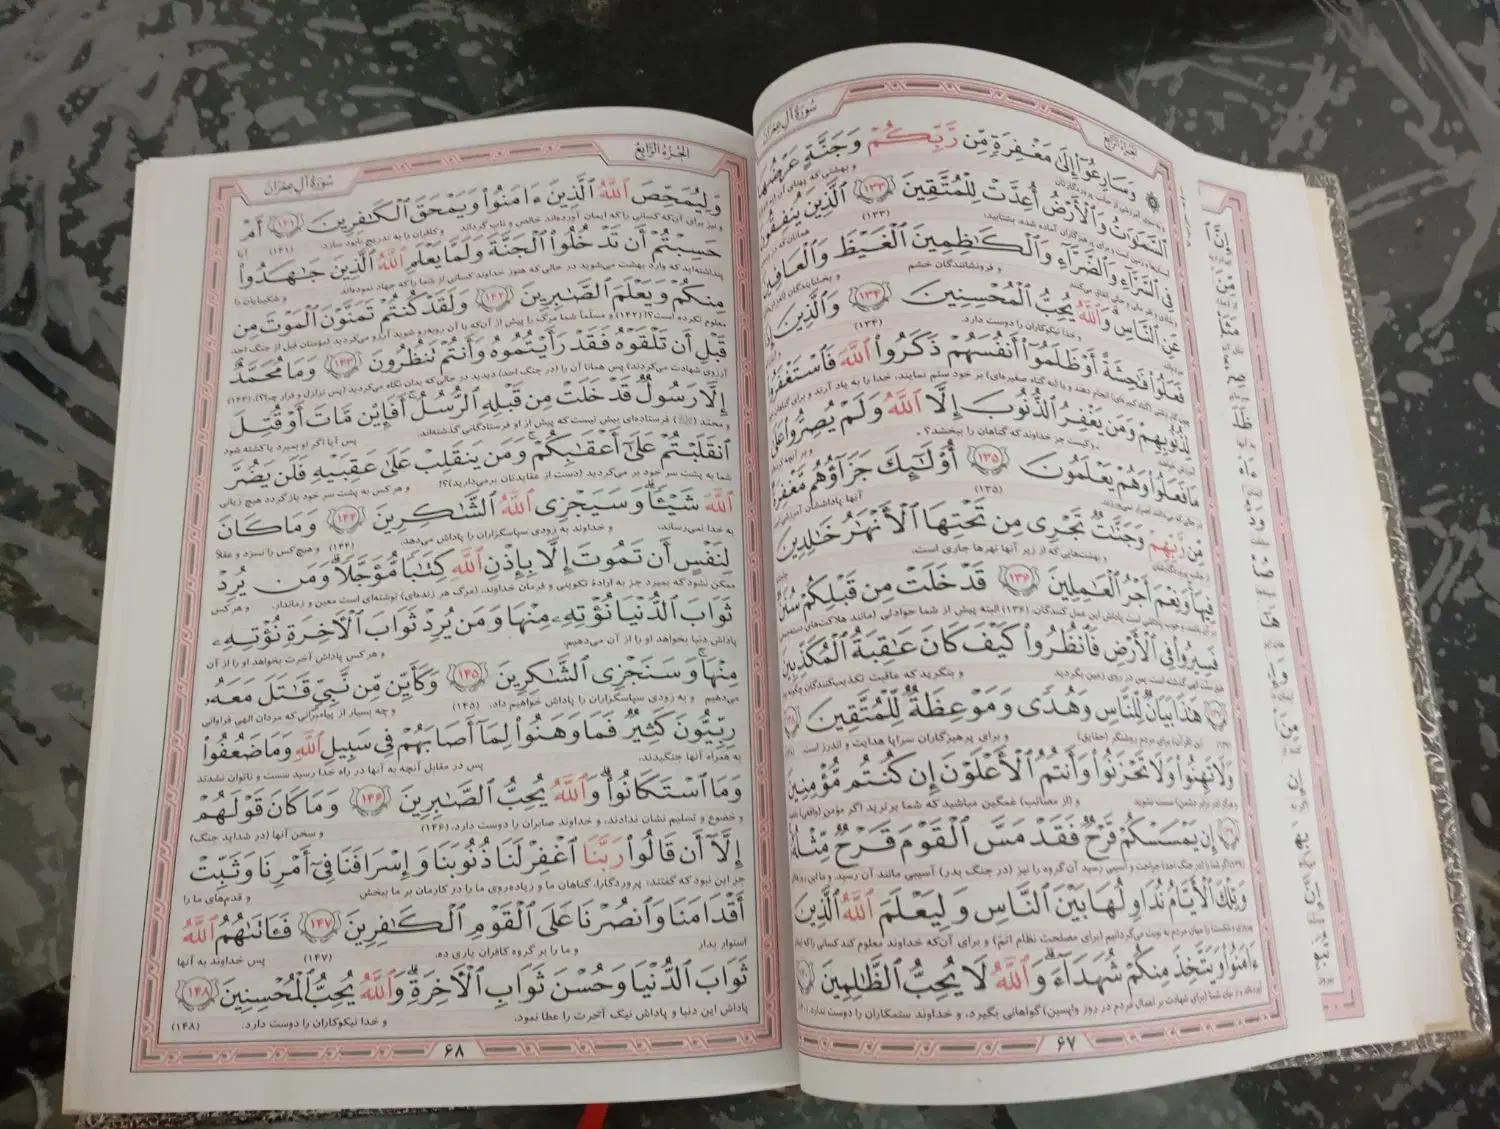 الجزء الرّابع
سُورَةُ آلِ عِمْرَان
وَسَارِعُوٓا۟ إِلَىٰ مَغْفِرَةٍ مِّن رَّبِّكُمْ وَجَنَّةٍ عَرْضُهَا
ٱلسَّمَٰوَٰتُ وَٱلْأَرْضُ أُعِدَّتْ لِلْمُتَّقِينَ ﴿۱۳۳﴾ ٱلَّذِينَ يُنفِقُونَ
آسمانها و زمین است و برای پرهیزگاران آماده شده، بشتابید. (۱۳۳)
فِى ٱلسَّرَّآءِ وَٱلضَّرَّآءِ وَٱلْكَٰظِمِينَ ٱلْغَيْظَ وَٱلْعَافِينَ
و فرونشانندگان خشم
عَنِ ٱلنَّاسِ وَٱللَّهُ يُحِبُّ ٱلْمُحْسِنِينَ ﴿۱۳۴﴾ وَٱلَّذِينَ إِذَا
و خدا نیکوکاران را دوست دارد. (۱۳۴)
فَعَلُوا۟ فَٰحِشَةً أَوْ ظَلَمُوٓا۟ أَنفُسَهُمْ ذَكَرُوا۟ ٱللَّهَ فَٱسْتَغْفَرُوا۟
بر خود ستم نمایند، خدا را به یاد آرند و برای گناهان
لِذُنُوبِهِمْ وَمَن يَغْفِرُ ٱلذُّنُوبَ إِلَّا ٱللَّهُ وَلَمْ يُصِرُّوا۟ عَلَىٰ
وکیست جز خداوند که گناهان را ببخشد؟
مَا فَعَلُوا۟ وَهُمْ يَعْلَمُونَ ﴿۱۳۵﴾ أُو۟لَٰٓئِكَ جَزَآؤُهُم مَّغْفِرَةٌ
(۱۳۵) آنها پاداششان آمرزش
مِّن رَّبِّهِمْ وَجَنَّٰتٌ تَجْرِى مِن تَحْتِهَا ٱلْأَنْهَٰرُ خَٰلِدِينَ
و بهشت‌هایی که از زیر آنها نهرها جاری است.
فِيهَا وَنِعْمَ أَجْرُ ٱلْعَٰمِلِينَ ﴿۱۳۶﴾ قَدْ خَلَتْ مِن قَبْلِكُمْ سُنَنٌ
پاداش این عمل کنندگان. (۱۳۶) البته پیش از شما حوادثی (مانند هلاکت‌های دسته‌جمعی
فَسِيرُوا۟ فِى ٱلْأَرْضِ فَٱنظُرُوا۟ كَيْفَ كَانَ عَٰقِبَةُ ٱلْمُكَذِّبِينَ
پس در روی زمین بگردید و بنگرید که عاقبت تکذیب‌کنندگان چگونه
﴿۱۳۷﴾ هَٰذَا بَيَانٌ لِّلنَّاسِ وَهُدًى وَمَوْعِظَةٌ لِّلْمُتَّقِينَ ﴿۱۳۸﴾
این (قرآن) برای مردم روشنگر (حقایق) و برای پرهیزگاران سراپا هدایت و اندرز است.
وَلَا تَهِنُوا۟ وَلَا تَحْزَنُوا۟ وَأَنتُمُ ٱلْأَعْلَوْنَ إِن كُنتُم مُّؤْمِنِينَ
سست نشوید و (از مصائب) غمگین مباشید که شما برترید اگر مؤمن (واقعی)
﴿۱۳۹﴾ إِن يَمْسَسْكُمْ قَرْحٌ فَقَدْ مَسَّ ٱلْقَوْمَ قَرْحٌ مِّثْلُهُۥ
جراحت و آسیبی رسید آن گروه را نیز (در جنگ بدر) آسیبی مانند آن رسید.
وَتِلْكَ ٱلْأَيَّامُ نُدَاوِلُهَا بَيْنَ ٱلنَّاسِ وَلِيَعْلَمَ ٱللَّهُ ٱلَّذِينَ
میان مردم به نوبت می‌گردانیم (برای مصلحت نظام اتم) و برای آن‌که خداوند معلوم کند کسانی را که
ءَامَنُوا۟ وَيَتَّخِذَ مِنكُمْ شُهَدَآءَ وَٱللَّهُ لَا يُحِبُّ ٱلظَّٰلِمِينَ ﴿۱۴۰﴾
(برای شهادت بر اعمال مردم در روز واپسین) گواهانی بگیرد، و خداوند ستمکاران را دوست ندارد.
۶۷
الجزء الرّابع
سُورَةُ آلِ عِمْرَان
وَلِيُمَحِّصَ ٱللَّهُ ٱلَّذِينَ ءَامَنُوا۟ وَيَمْحَقَ ٱلْكَٰفِرِينَ ﴿۱۴۱﴾ أَمْ
و نیز برای آن‌که کسانی را که ایمان آورده‌اند خالص و ناب گرداند و کافران را به تدریج نابود سازد. (۱۴۱) آیا
حَسِبْتُمْ أَن تَدْخُلُوا۟ ٱلْجَنَّةَ وَلَمَّا يَعْلَمِ ٱللَّهُ ٱلَّذِينَ جَٰهَدُوا۟
پنداشته‌اید که وارد بهشت می‌شوید در حالی که هنوز خداوند کسانی از شما را که جهاد نموده‌اند و شکیبایان را
مِنكُمْ وَيَعْلَمَ ٱلصَّٰبِرِينَ ﴿۱۴۲﴾ وَلَقَدْ كُنتُمْ تَمَنَّوْنَ ٱلْمَوْتَ مِن
معلوم نکرده است؟! (۱۴۲) و مسلّماً شما مرگ را پیش از آن‌که با آن روبه‌رو شوید آرزو می‌کردید (مؤمنان قبل از جنگ احد
قَبْلِ أَن تَلْقَوْهُ فَقَدْ رَأَيْتُمُوهُ وَأَنتُمْ تَنظُرُونَ ﴿۱۴۳﴾ وَمَا مُحَمَّدٌ
آرزوی شهادت می‌کردند) پس همانا آن را (در جنگ احد) دیدید در حالی که بدان نگاه می‌کردید (پس تزلزل و فرار چرا؟). (۱۴۳)
إِلَّا رَسُولٌ قَدْ خَلَتْ مِن قَبْلِهِ ٱلرُّسُلُ أَفَإِي۟ن مَّاتَ أَوْ قُتِلَ
و محمّد (ﷺ) فرستاده‌ای بیش نیست که پیش از او فرستادگانی گذشته‌اند. پس آیا اگر او بمیرد یا کشته شود
ٱنقَلَبْتُمْ عَلَىٰٓ أَعْقَٰبِكُمْ وَمَن يَنقَلِبْ عَلَىٰ عَقِبَيْهِ فَلَن يَضُرَّ
شما به پشت سر خود بر می‌گردید (دست از عقایدتان برمی‌دارید)؟! و هر کس به پشت سر خود بازگردد هیچ زیانی
ٱللَّهَ شَيْـًٔا وَسَيَجْزِى ٱللَّهُ ٱلشَّٰكِرِينَ ﴿۱۴۴﴾ وَمَا كَانَ
به خدا نمی‌رساند، و خداوند به زودی سپاسگزاران را پاداش می‌دهد. (۱۴۴) و هیچ‌کس را نسزد و عقلاً
لِنَفْسٍ أَن تَمُوتَ إِلَّا بِإِذْنِ ٱللَّهِ كِتَٰبًا مُّؤَجَّلًا وَمَن يُرِدْ
ممکن نشود که بمیرد جز به ارادهٔ تکوینی و فرمان خداوند، (مرگ هر زنده‌ای) نوشته‌ای است معین و زماندار. و هر کس
ثَوَابَ ٱلدُّنْيَا نُؤْتِهِۦ مِنْهَا وَمَن يُرِدْ ثَوَابَ ٱلْـَٔاخِرَةِ نُؤْتِهِۦ
پاداش دنیا بخواهد او را از آن می‌دهیم. و هر کس پاداش آخرت بخواهد او را از آن
مِنْهَا وَسَنَجْزِى ٱلشَّٰكِرِينَ ﴿۱۴۵﴾ وَكَأَيِّن مِّن نَّبِىٍّ قَٰتَلَ مَعَهُۥ
می‌دهیم و به زودی سپاسگزاران را پاداش خواهیم داد. (۱۴۵) و چه بسیار از پیامبرانی که مردان الهی فراوانی
رِبِّيُّونَ كَثِيرٌ فَمَا وَهَنُوا۟ لِمَآ أَصَابَهُمْ فِى سَبِيلِ ٱللَّهِ وَمَا ضَعُفُوا۟
به همراه آنها جنگیدند، پس در مقابل آنچه به آنها در راه خدا رسید سست و ناتوان نشدند
وَمَا ٱسْتَكَانُوا۟ وَٱللَّهُ يُحِبُّ ٱلصَّٰبِرِينَ ﴿۱۴۶﴾ وَمَا كَانَ قَوْلَهُمْ
و خضوع و تسلیم نشان ندادند، و خداوند صابران را دوست دارد. (۱۴۶) و سخن آنها (در شداید جنگ)
إِلَّآ أَن قَالُوا۟ رَبَّنَا ٱغْفِرْ لَنَا ذُنُوبَنَا وَإِسْرَافَنَا فِىٓ أَمْرِنَا وَثَبِّتْ
جز این نبود که گفتند: پروردگارا، گناهان ما و زیاده‌روی ما را در کارمان بر ما ببخش و قدم‌های ما را
أَقْدَامَنَا وَٱنصُرْنَا عَلَى ٱلْقَوْمِ ٱلْكَٰفِرِينَ ﴿۱۴۷﴾ فَـَٔاتَىٰهُمُ ٱللَّهُ
استوار بدار و ما را بر گروه کافران یاری ده. (۱۴۷) پس خداوند به آنها
ثَوَابَ ٱلدُّنْيَا وَحُسْنَ ثَوَابِ ٱلْـَٔاخِرَةِ وَٱللَّهُ يُحِبُّ ٱلْمُحْسِنِينَ ﴿۱۴۸﴾
پاداش این دنیا و پاداش نیک آخرت را عطا نمود، و خدا نیکوکاران را دوست دارد. (۱۴۸)
۶۸